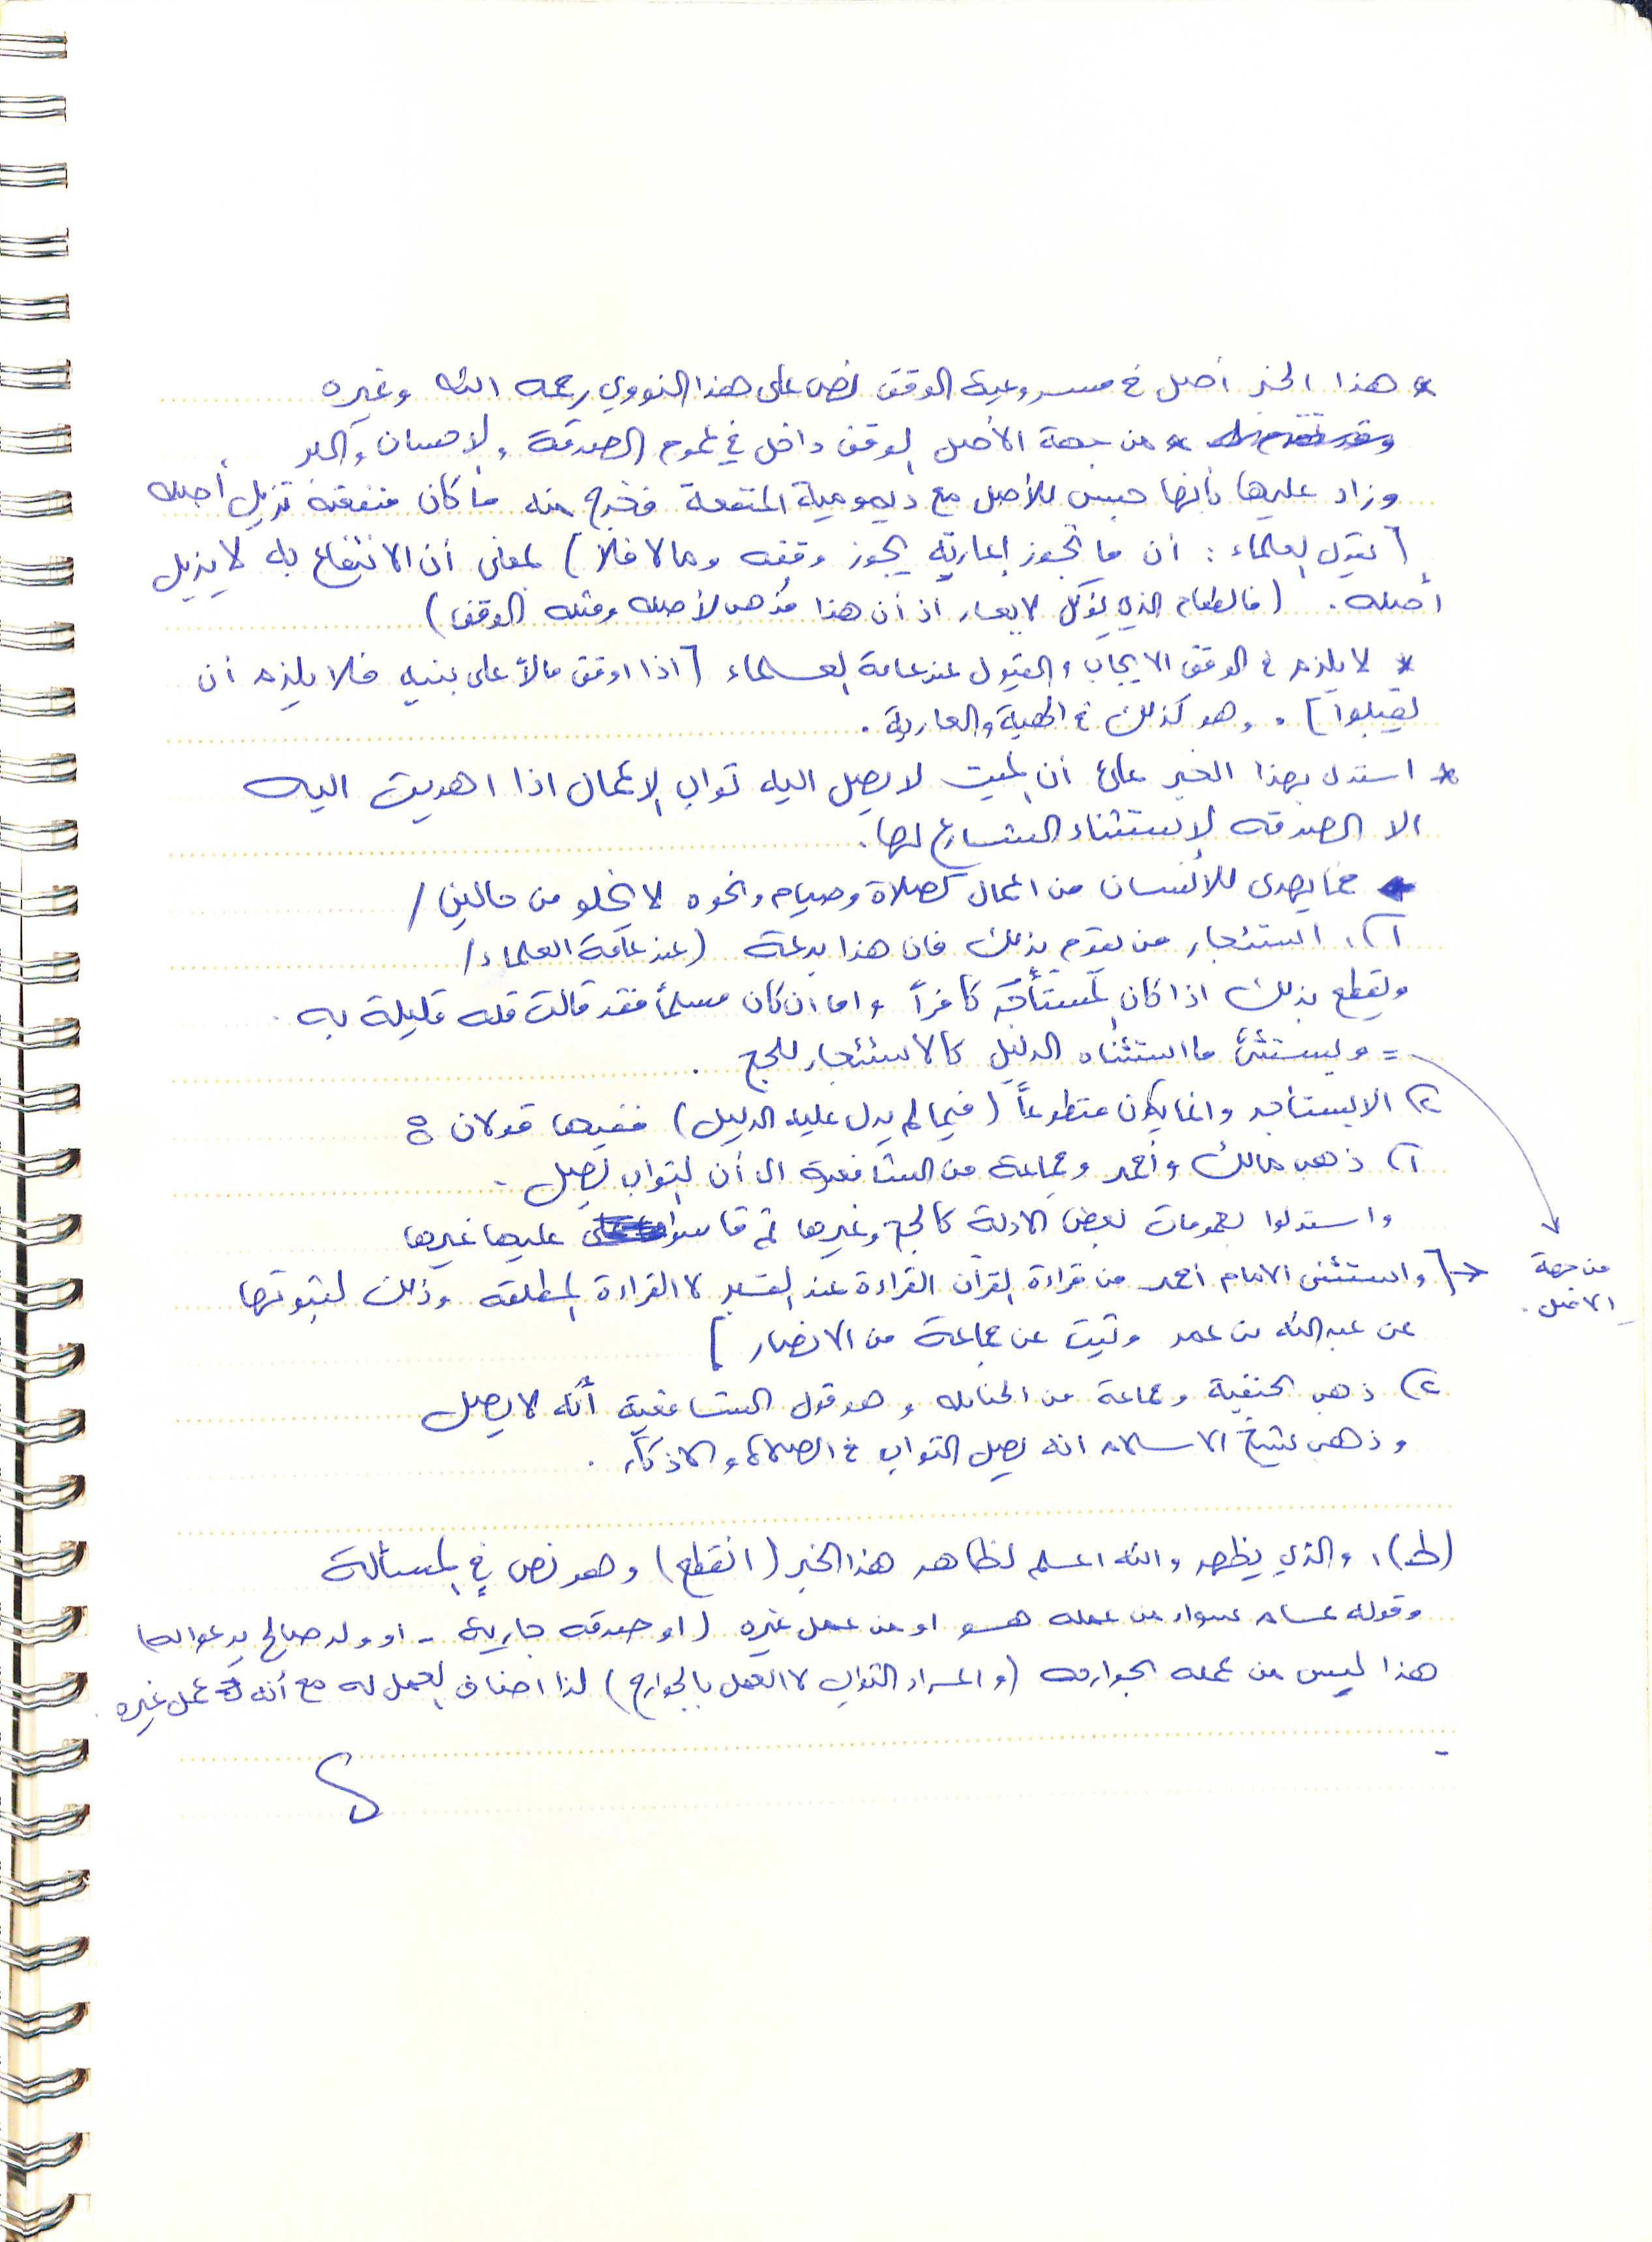 * هذا الخبر أصل في مشروعية الوقف نص على هذا النووي رحمه الله وغيره
* من جهة الأصل الوقف داخل في عموم الصدقة والاحسان والبر
وزاد عليها بأنها حبس للأصل مع ديمومية المنفعة فخرج منه ما كان منفعته تزيل أصله
[يقول العلماء: أن ما تجوز إعارته يجوز وقفه وما لا فلا) بمعنى أن الانتفاع به لا يزيل
أصله. (فالطعام الذي يؤكل لا يعار اذ أن هذا مُذهب لأصله ومثله الوقف)
* لا يلزم في الوقف الايجاب والقبول عند عامة العلماء [اذا اوقف مالاً على بنيه فلا يلزم أن
يقبلوا]. وهو كذلك في الهبة والعارية.
* استدل بهذا الخبر على أن الميت لا يصل اليه ثواب الاعمال اذا اهديت اليه
الا الصدقه لاستثناء الشارع لها.
فما يهدى للانسان من اعمال كصلاة وصيام ونحوه لا يخلو من حالين/
١) استئجار من يقوم بذلك فان هذا بدعة (عند عامة العلماء/
ويقطع بذلك اذا كان المستأجَر كافراً واما ان كان مسلماً فقد قالت قله قليلة به.
= ويستثنى ما استثناه الدليل كالاستئجار للحج.
٢) الا يستاجر وانما يكون متطوعاً (فيما لم يدل عليه الدليل) ففيها قولان:
١) ذهب مالك وأحمد وجماعة من الشافعية الى أن الثواب يصل.
واستدلوا بعمومات بعض الادلة كالحج وغيرها ثم قاسوا عليها غيرها
[واستثنى الامام احمد من قراءة القرآن القراءة عند القبر لا القراءة المطلقه وذلك لثبوتها
من جهة
الاصل.
عن عبد الله بن عمر وثبت عن جماعة من الانصار]
٢) ذهب الحنفية وجماعة من الحنابله وهو قول الشافعية أنه لا يصل
وذهب شيخ الاسلام انه يصل الثواب في الصلاة والاذكار.
(ط)، والذي يظهر والله اعلم لظاهر هذا الخبر (انقطع) وهو نص في المسألة
وقوله عام سواء من عمله هو او من عمل غيره (او صدقه جارية - او ولد صالح يدعو له)
هذا ليس من عمله الجوارحه (والمراد الثواب لا العمل بالجوارح) لذا اضاف العمل له مع أنه عمل غيره.